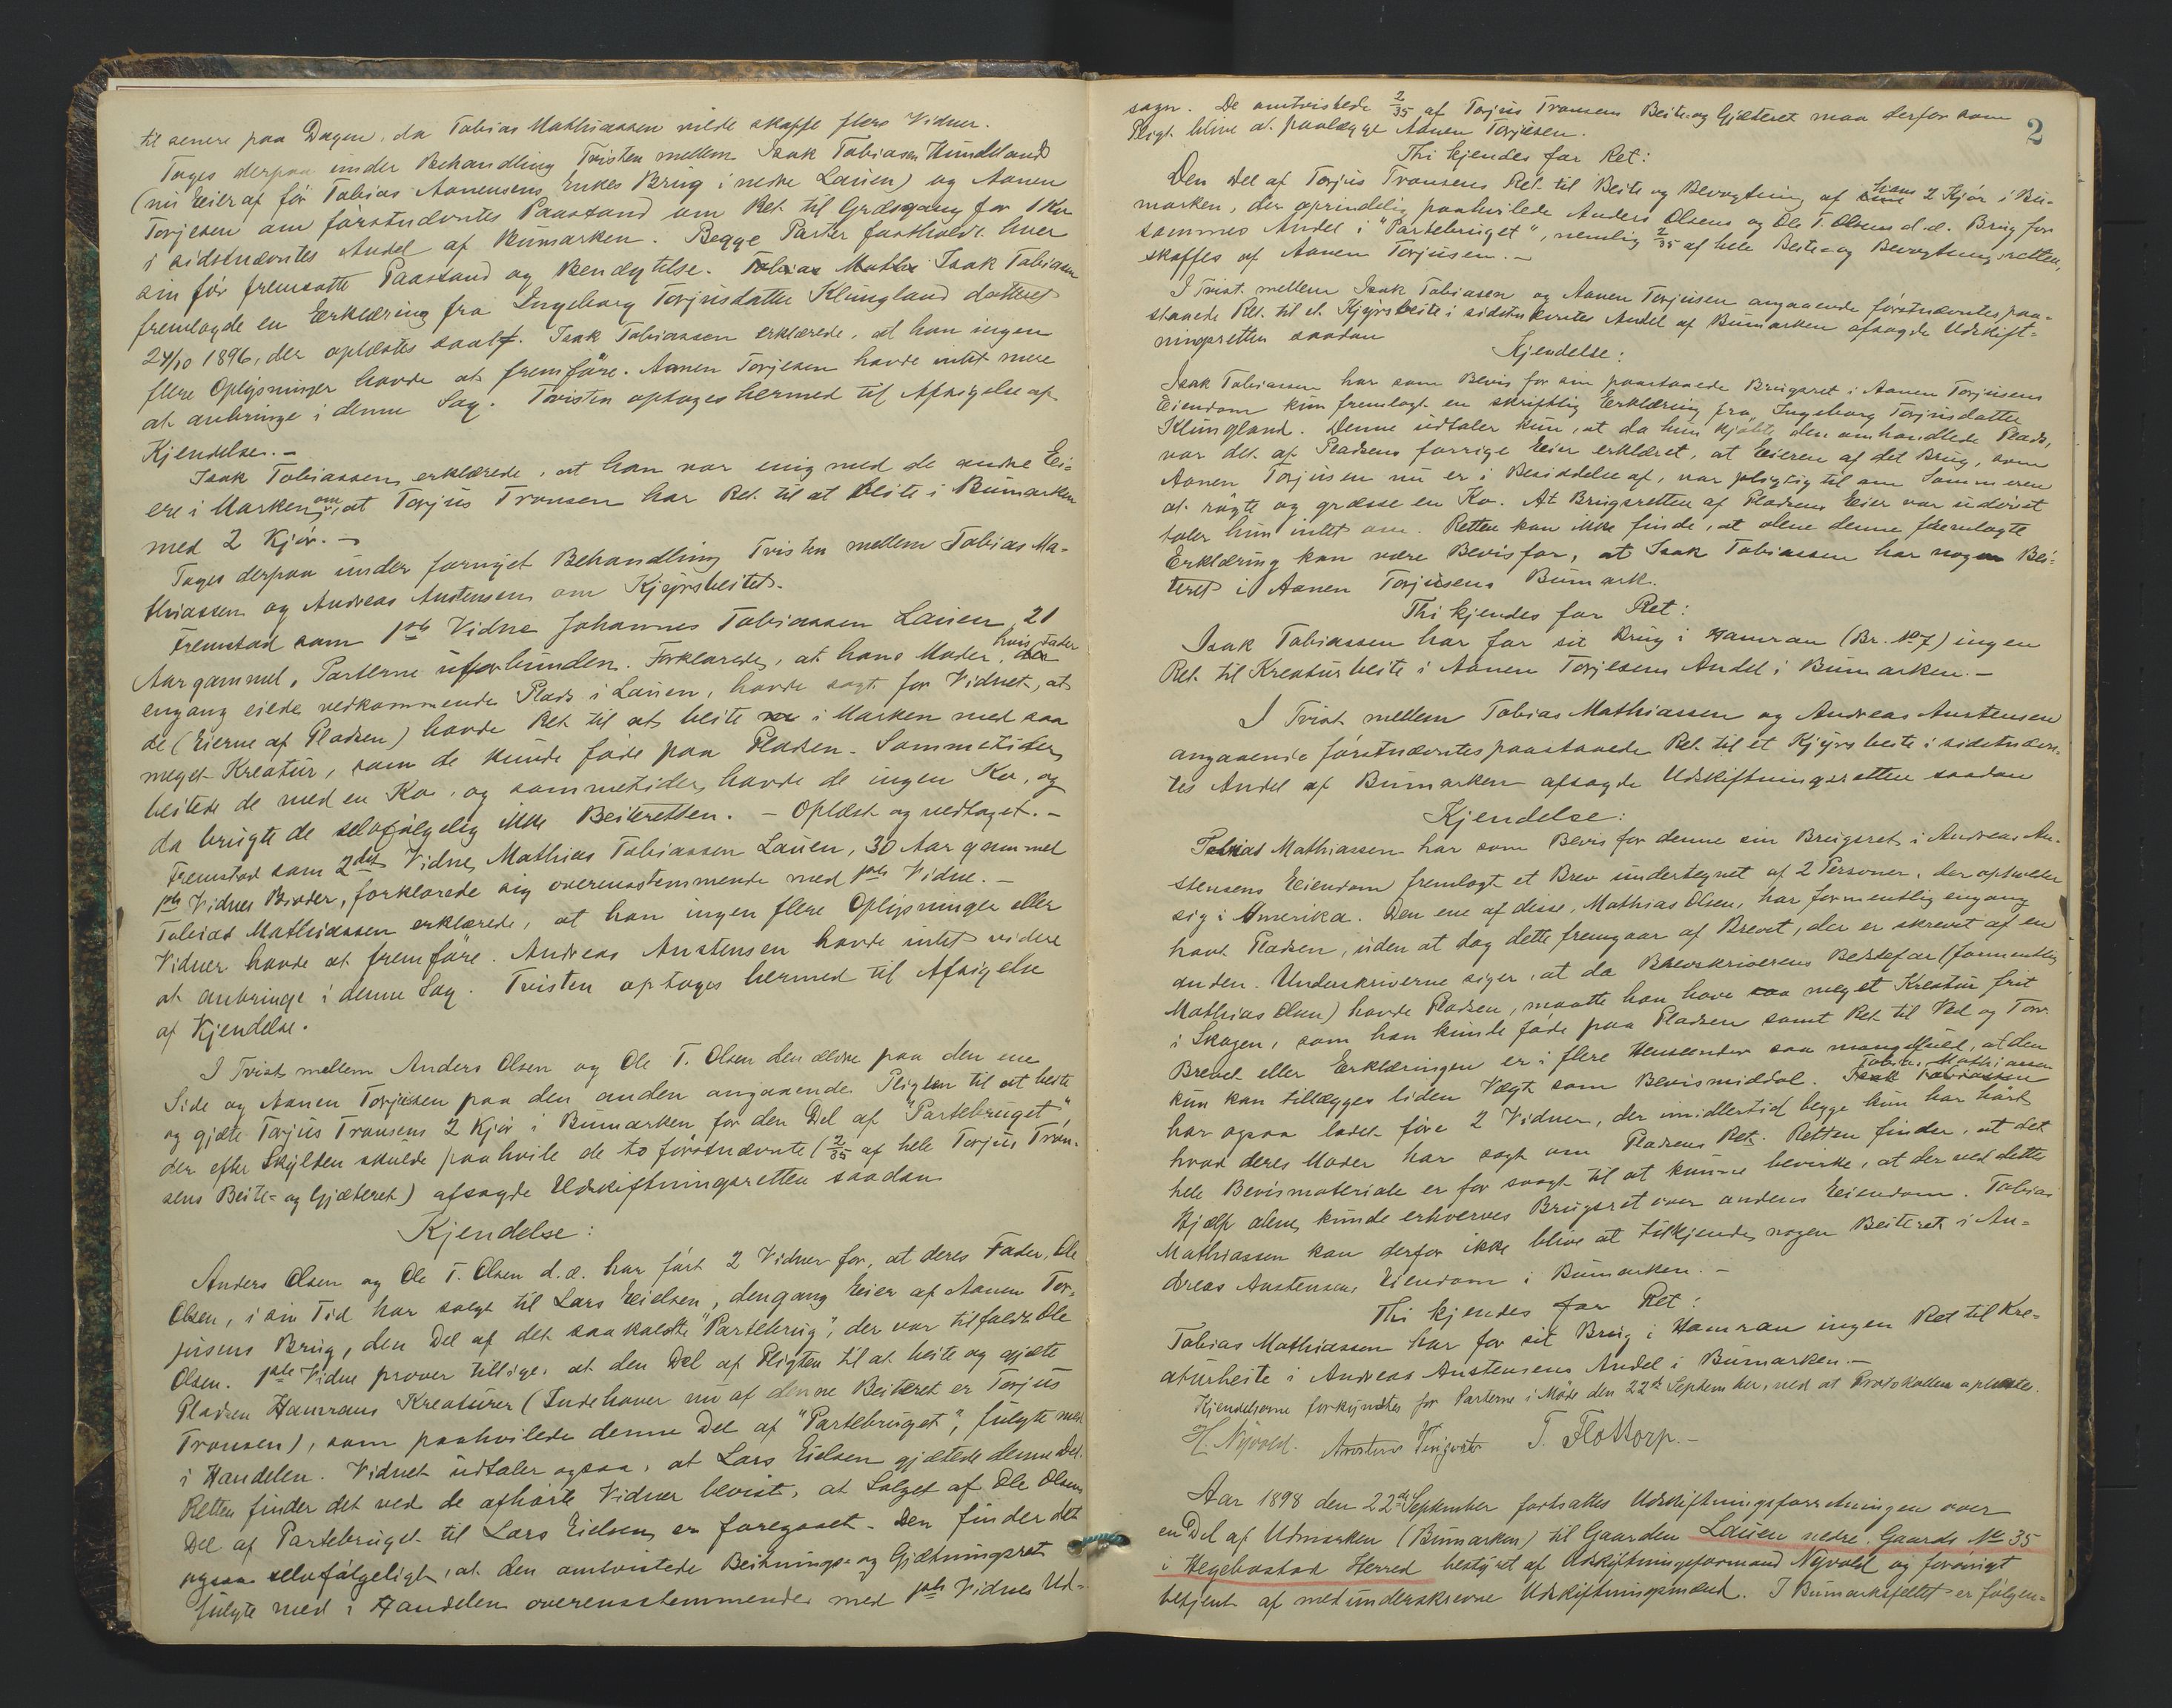 til senere paa Dagen, da Tobias Mathiassen vilde skaffe flere Vidner.
Toges derpaa under Behandling Tvisten mellem Isak Tobiasen Hunddland
(nu Eier af før Tobias Aanensens Enkes Brug i nedre Lauen) og Aanen
Torjesen om førstnævntes Paastand om Ret til Græsgang for 1 Ko
i sidstnævntes Andel af Bumarken. Begge Parter fastholdt hver
sin før fremsatte Paastand og Benægtelse. Isak Tobiasen
fremlagde en Erklæring fra Ingeborg Torjusdatter Klungland dateret
24/10 1896, der oplæstes saalt. Isak Tobiassen erklærede, at han ingen
flere Oplysninger havde at fremføre. Aanen Torjesen havde intet mere
at anbringe i denne Sag. Tvisten optoges hermed til Afsigelse af
Kjendelse.-
Isak Tobiassen erklærede, at han var enig med de andre Ei-
ere i Marken om, at Torjus Tronsen har Ret til at beite i Bumarken
med 2 Kjør.-
Toges derpaa under fornyet Behandling Tvisten mellem Tobias Ma-
thiassen og Andreas Austensen om Kjyrsbeitet.
Fremstod som 1ste Vidne Johannes Tobiassen Lauen, 21
Aar gammel, Parterne uforbunden. Forklarede, at hans Moder, hvis Fader
engang eiede vedkommende Plads i Lauen, havde sagt for Vidnet, at
de (Eierne af Pladsen) havde Ret til at beite i Marken med saa
meget Kreatur, som de kunde føde paa Pladsen. Sommetider
beitede de med en Ko, og sommetider havde de ingen Ko, og
da brugte de selvfølgelig ikke Beiteretten. - Oplæst og vedtaget.-
Fremstod som 2det Vidne Mathias Tobiassen Lauen, 30 Aar gammel
1ste Vidnes Broder, forklarede sig overensstemmende med 1ste Vidne.-
Tobias Mathiassen erklærede, at han ingen flere Oplysninger eller
Vidner havde at fremføre. Andreas Austensen havde intet videre
at anbringe i denne Sag. Tvisten optoges hermed til Afsigelse
af Kjendelse.
I Tvist mellem Anders Olsen og Ole T. Olsen den ældre paa den ene
Side og Aanen Torjusen paa den anden angaaende Pligten til at beite
og gjæte Torjus Tronsens 2 Kjør i Bumarken for den Del af "Partebruget",
der efter Skylden skulde paahvile de to førstnævnte (2/35 af hele Torjus Tron-
sens Beite- og Gjæteret) afsagde Udskiftningsretten saadan
Kjendelse:
Anders Olsen og Ole T. Olsen d.æ. har ført 2 Vidner for, at deres Fader, Ole
Olsen, i sin Tid har solgt til Lars Eielsen, dengang Eier af Aanen Tor-
jusens Brug, den Del af det saakaldte "Partebrug", der var tilfaldt Ole
Olsen. 1ste Vidne prover tillige, at den Del af Pligten til at beite og gjæte
Pladsen Hamraus Kreaturer (Indehaver nu af denne Beiteret er Torjus
Tronsen), som paahvilede denne Del af "Partebruget", fulgte med
i Handelen. Vidnet udtaler ogsaa, at Lars Eielsen gjætede denne Del.
Retten finder det ved de afhørte Vidner bevist, at Salget af Ole Olsens
Del af Partebruget til Lars Eielsen er foregaaet. Den finder det
ogsaa selvfølgeligt, at den omtvistede Beitnings- og Gjætningsret
fulgte med i Handelen overensstemmende med 1ste Vidnes Ud-
2
sagn. De omtvistede 2/35 af Torjus Tronsens Beite- og Gjæteret maa derfor som
Pligt blive at paalægge Aanen Torjusen.
Thi kjendes for Ret:
Den Del af Torjus Tronsens Ret til Beite og Bevogtning af hans 2 Kjør i Bu-
marken, der oprindelig paahvilede Anders Olsens og Ole T. Olsens d.æ. Brug for
sammes Andel i "Partebruget", nemlig 2/35 af hele Beite- og Bevogtningsretten,
skaffes af Aanen Torjusen.-
I Tvist mellem Isak Tobiasen og Aanen Torjusen angaaende førstnævntes paa-
staaede Ret til et Kjyrsbeite i sidstnævntes Andel af Bumarken afsagde Udskift-
ningsretten saadan
Kjendelse:
Isak Tobiassen har som Bevis for sin paastaaede Brugsret i Aanen Torjusens
Eiendom kun fremlagt en skriftlig Erklæring fra Ingeborg Torjusdatter
Klungland. Denne udtaler kun, at da hun kjøbte den omhandlede Plads,
var det af Pladsens forrige Eier erklæret, at Eieren af det Brug, som
Aanen Torjusen nu er i Besiddelse af, var pligtig til om Sommeren
at røgte og græsse en Ko. At Brugsretten af Pladsens Eier var udøvet
taler hun intet om. Retten kan ikke finde, at alene denne fremlagte
Erklæring kan være Bevis for, at Isak Tobiassen har nogen Bei-
teret i Aanen Torjusens Bumark.
Thi kjendes for Ret:
Isak Tobiassen har for sit Brug i Hamran (Br. No 7) ingen
Ret til Kreaturbeite i Aanen Torjesens Andel i Bumarken.-
I Tvist mellem Tobias Mathiassen og Andreas Austensen
angaaende førstnævntes paastaaede Ret til et Kjyrsbeite i sidstnævn-
tes Andel af Bumarken afsagde Udskiftningsretten saadan
Kjendelse:
Tobias Mathiassen har som Bevis for denne sin Brugsret i Andreas Au-
stensens Eiendom fremlagt et Brev undertegnet af 2 Personer, der opholder
sig i Amerika. Den ene af disse, Mathias Olsen, har formentlig engang
havt Pladsen, uden at dog dette fremgaar af Brevet, der er skrevet af en
anden. Underskriverne siger, at da Brevskriverens Bedstefar (formentlig
Mathias Olsen) havde Pladsen, maatte han have saa meget Kreatur frit
i Skogen, som han kunde føde paa Pladsen samt Ret til Ved og Torv.
Brevet eller Erklæringen er i flere Henseender saa mangelfuld, at den
kun kan tillægges liden Vægt som Bevismiddel. Tobias Mathiassen
har ogsaa ladet føre 2 Vidner, der imidlertid begge kun har hørt
hvad deres Moder har sagt om Pladsens Ret. Retten finder, at det
hele Bevismateriale er for svagt til at kunne bevirke, at der ved dette
Hjælp alene kunde erhverves Brugsret over andens Eiendom. Tobias
Mathiassen kan derfor ikke blive at tilkjende nogen Beiteret i An-
dreas Austensens Eiendom i Bumarken.-
Thi kjendes for Ret:
Tobias Mathiassen har for sit Brug i Hamran ingen Ret til Kre-
aturbeite i Andreas Austensens Andel i Bumarken.-
Kjendelserne forkyndtes for Parterne i Møde den 22de September, ved at Protokollen oplæstes.
H. Nyvold. T. Flottorp.-
Aar 1898 den 22de September fortsattes Udskiftningsforretningen over
en Del af Utmarken (Bumarken) til Gaarden Lauen nedre, Gaards No 35
i Hegebostad Herred bestyret af Udskiftningsformand Nyvold og forøvrigt
betjent af medunderskrevne Udskiftningsmænd. I Bumarksfeltet er følgen-